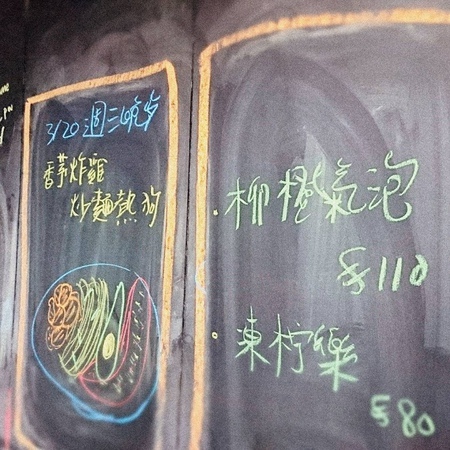 3/20 週三晚歺
香茅炸雞
炒麵熱狗
· 柳橙氣泡
$110
· 凍柠樂
$80